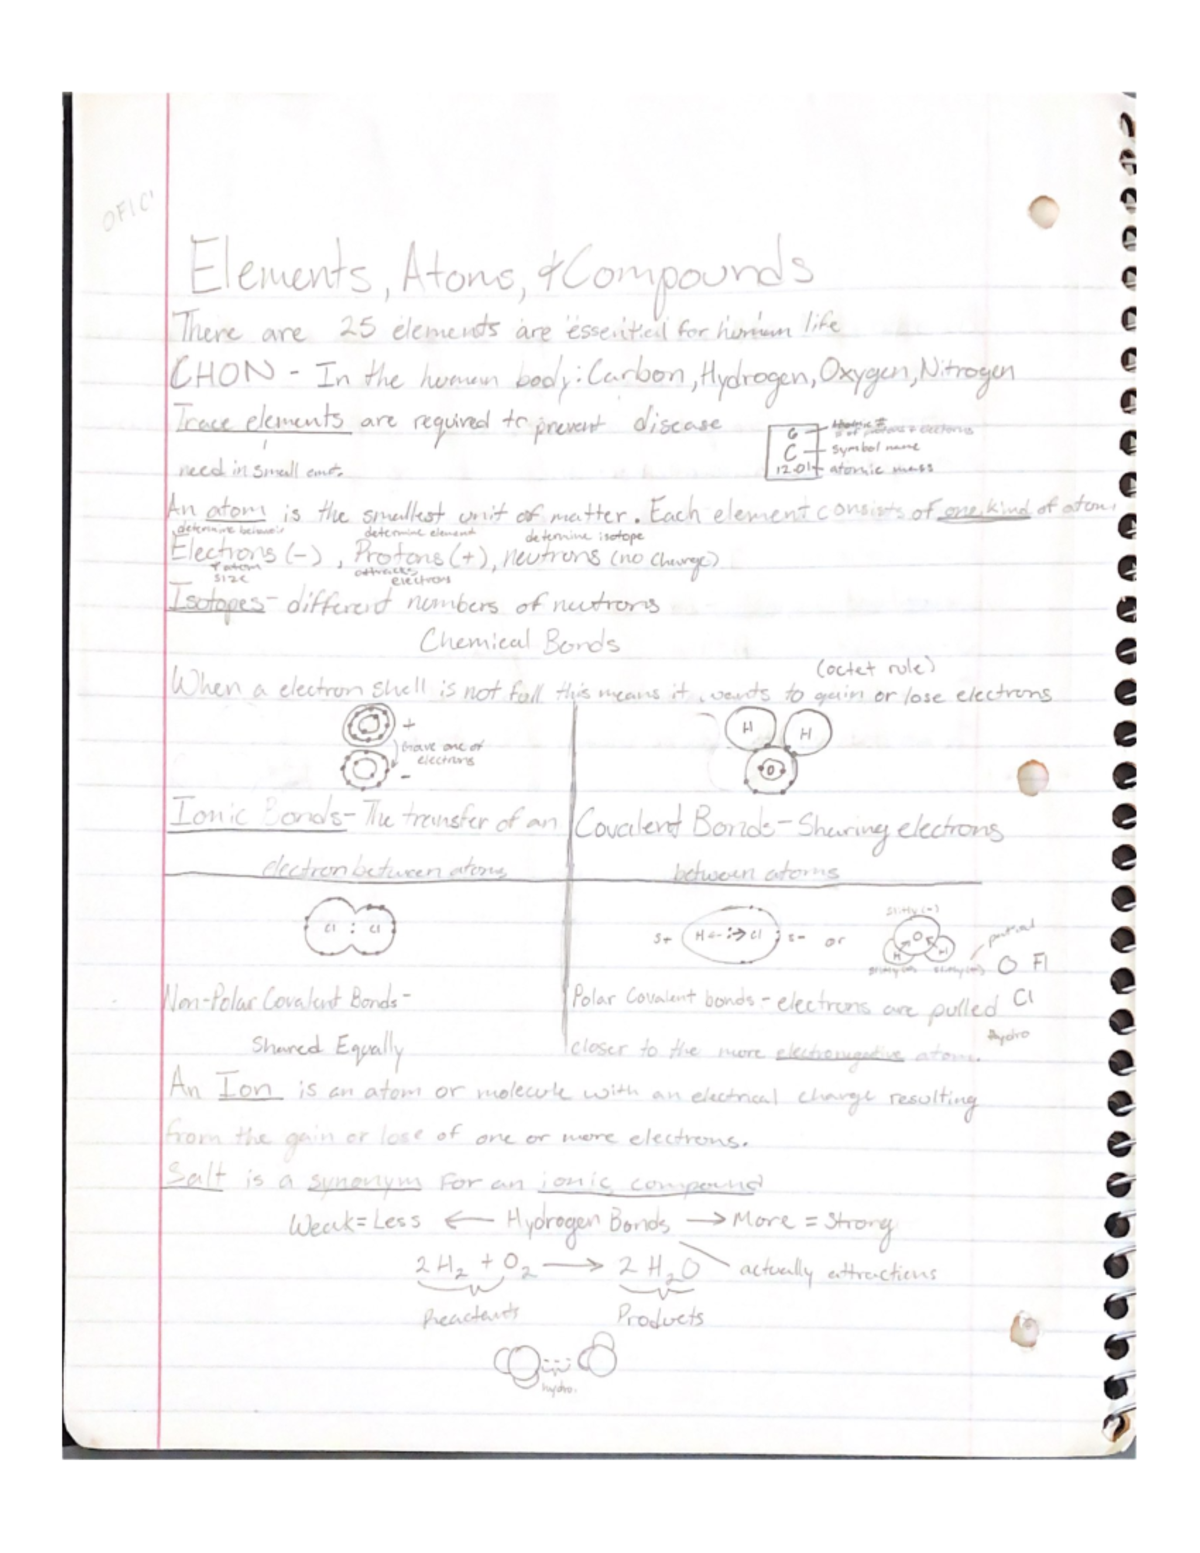 OFIC
Elements, Atoms, & Compounds
There are 25 elements are essential for human life
CHON - In the human body: Carbon, Hydrogen, Oxygen, Nitrogen
Trace elements are required to prevent disease
need in small amt.
6 - # of protons + electrons
C - symbol name
12.01 - atomic mass
An atom is the smallest unit of matter. Each element consists of one kind of atom.
determine element determine isotope
Electrons (-), Protons (+), neutrons (no charge)
atom size
attracts electrons
Isotopes - different numbers of neutrons
Chemical Bonds
(octet rule)
When a electron shell is not full this means it wants to gain or lose electrons
+
Gave one of electrons
-
H H
O
Ionic Bonds - The transfer of an
electron between atoms
Covalent Bonds - Sharing electrons
between atoms
Cl : Cl
S+ H Cl S- or
O
H H
O Fl
Non-Polar Covalent Bonds -
Shared Equally
Polar Covalent bonds - electrons are pulled Cl
closer to the more electronegative atom.
hydro
An Ion is an atom or molecule with an electrical charge resulting
from the gain or lose of one or more electrons.
Salt is a synonym for an ionic compound
Weak = Less ← Hydrogen Bonds → More = Strong
2H₂ + O₂ → 2 H₂O actually attractions
Reactants Products
hydro.